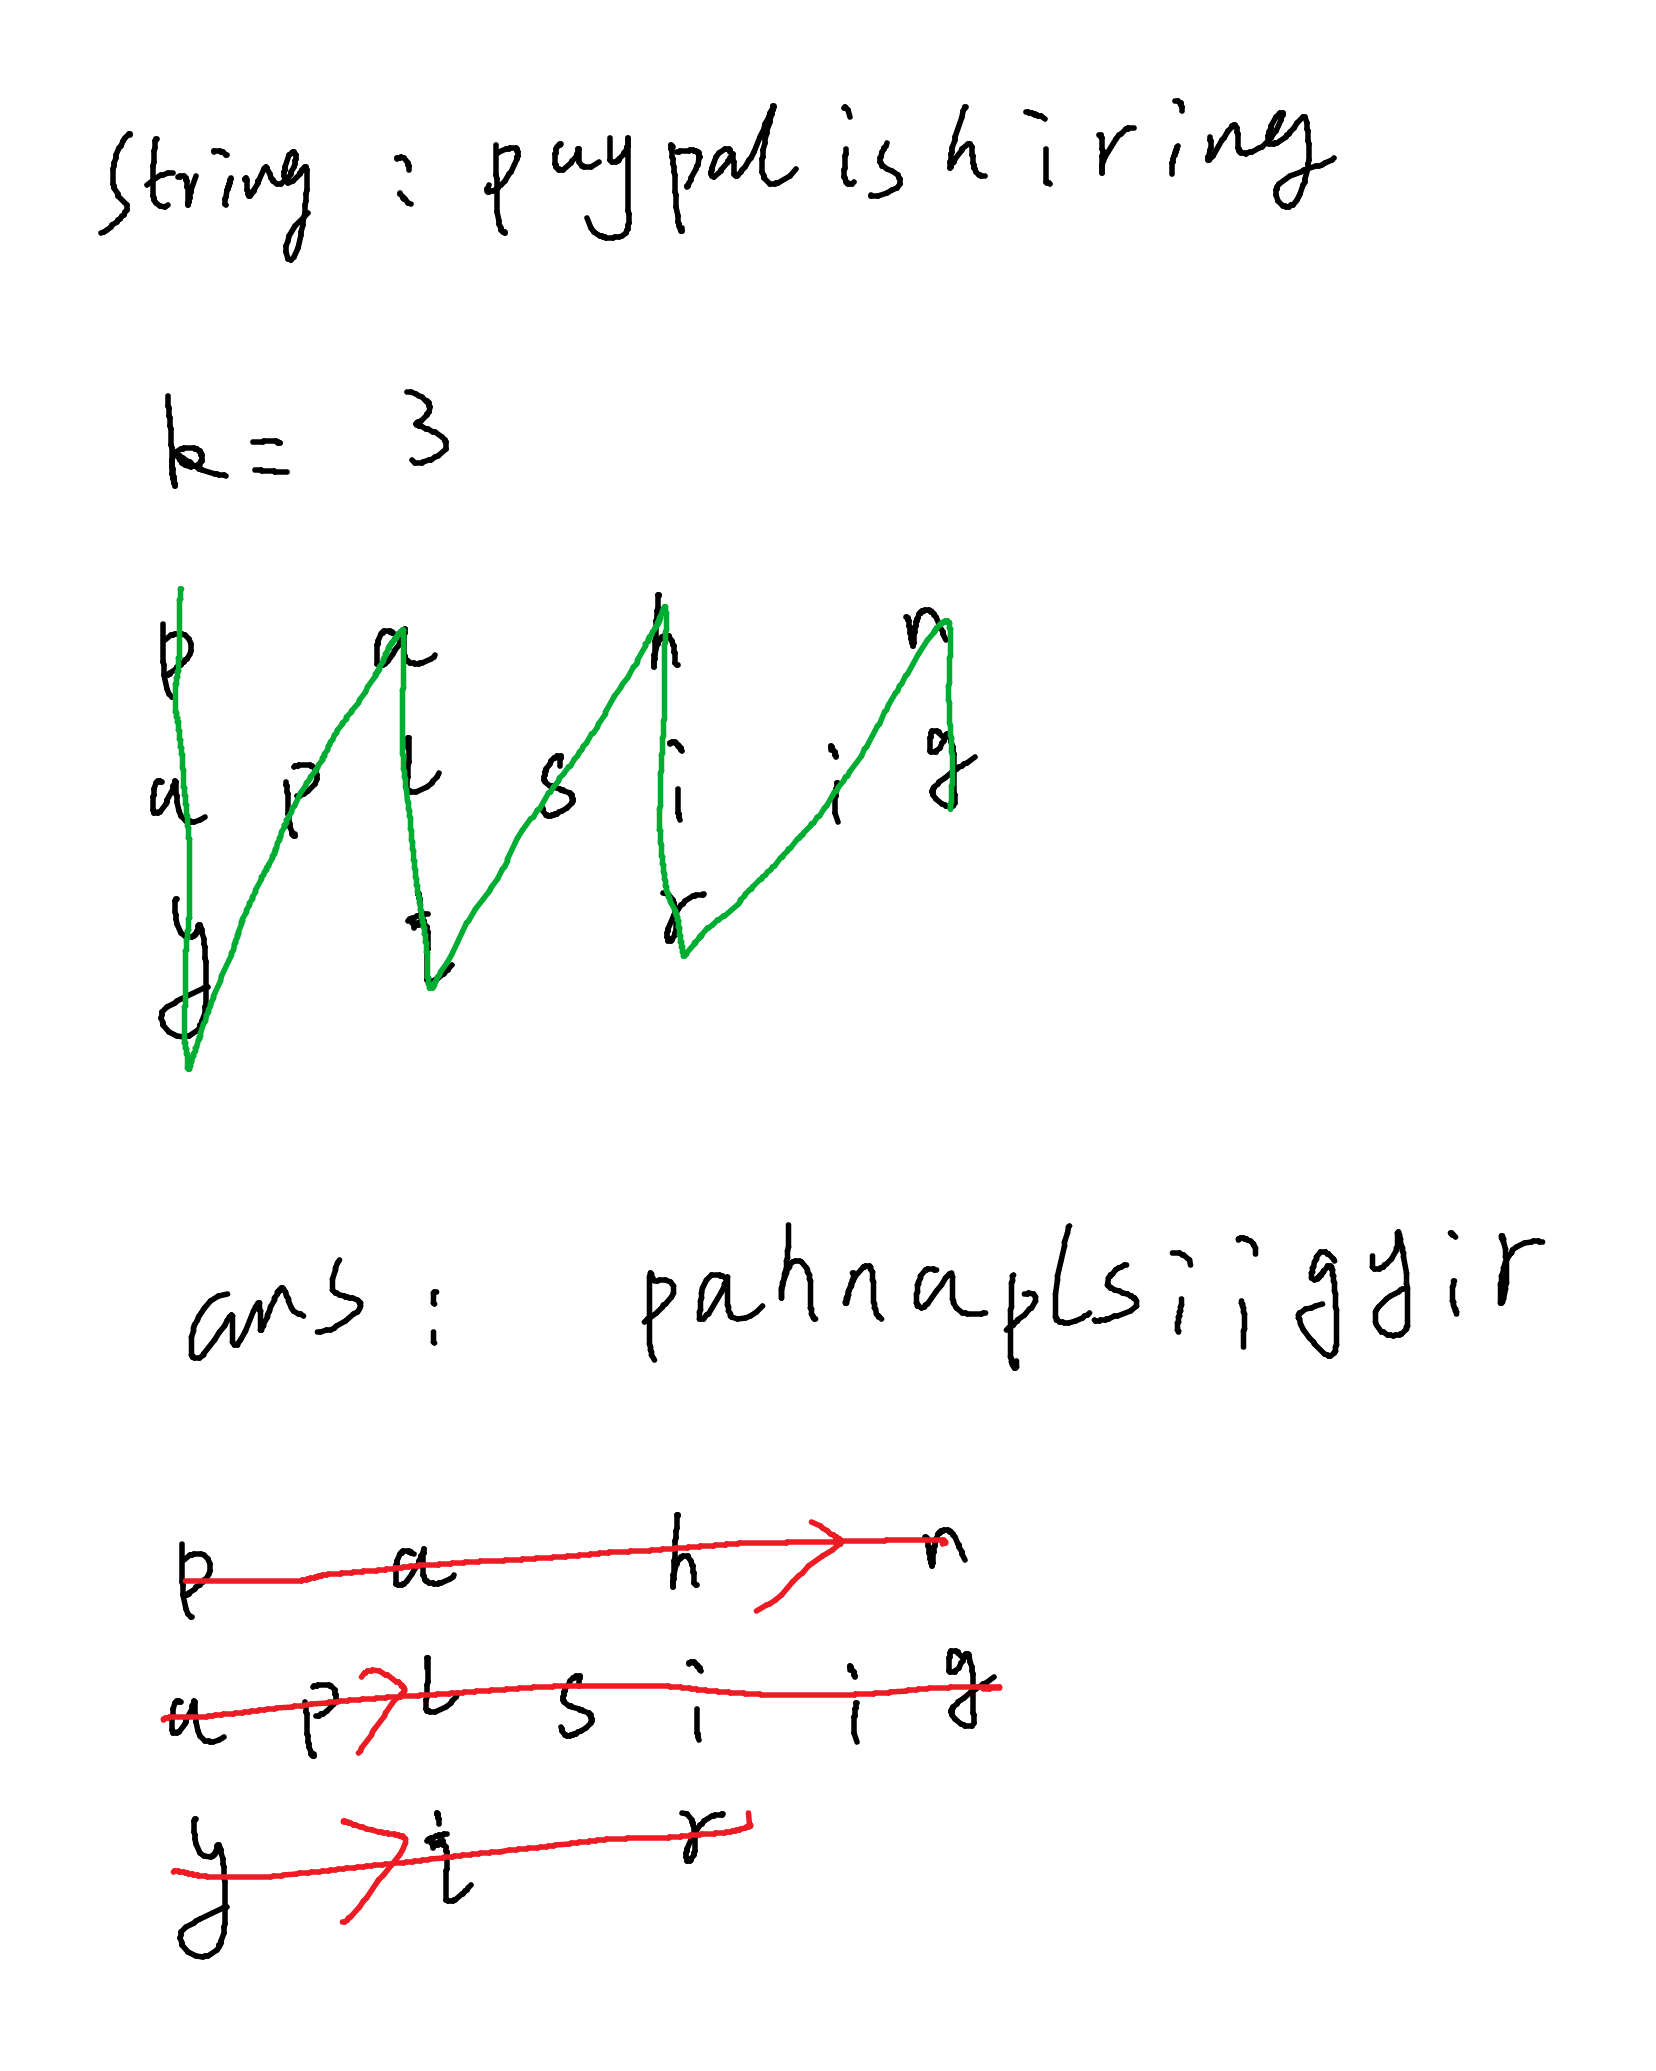 string : paypalishiring
k = 3
p a h n
a p l s i i g
y i r
ans : pahnaplsiigyir
p a h n
a p l s i i g
y i r